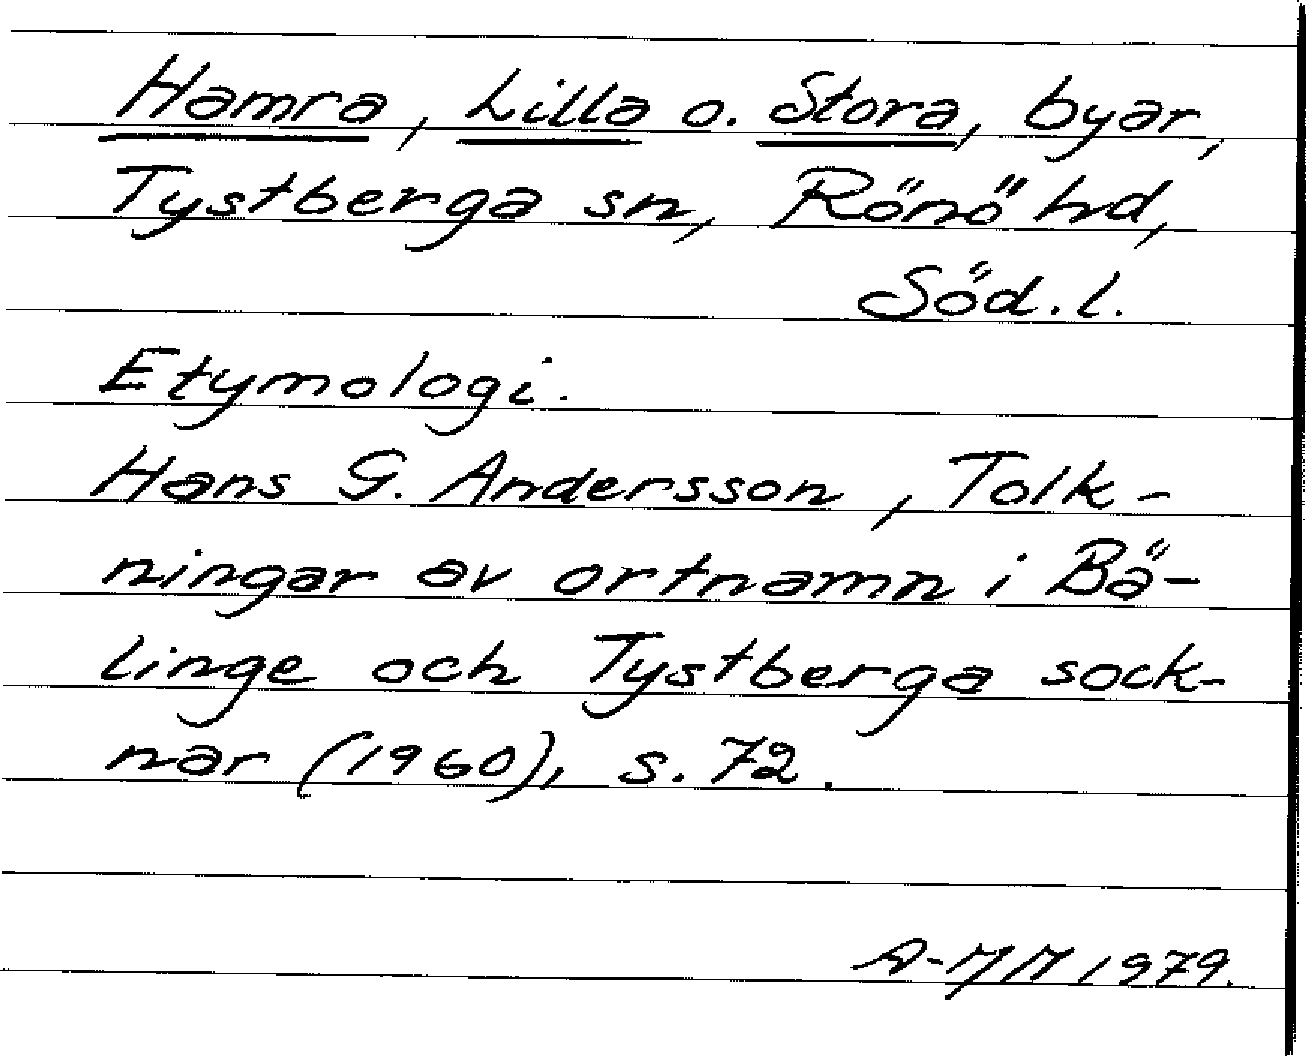 Hamra, Lilla o. Stora, byar,
Tystberga sn, Rönö hd,
Söd. l.
Etymologi.
Hans G. Andersson, Tolk-
ningar av ortnamn i Bä-
linge och Tystberga sock-
nar (1960), s. 72.
A-MM 1979.